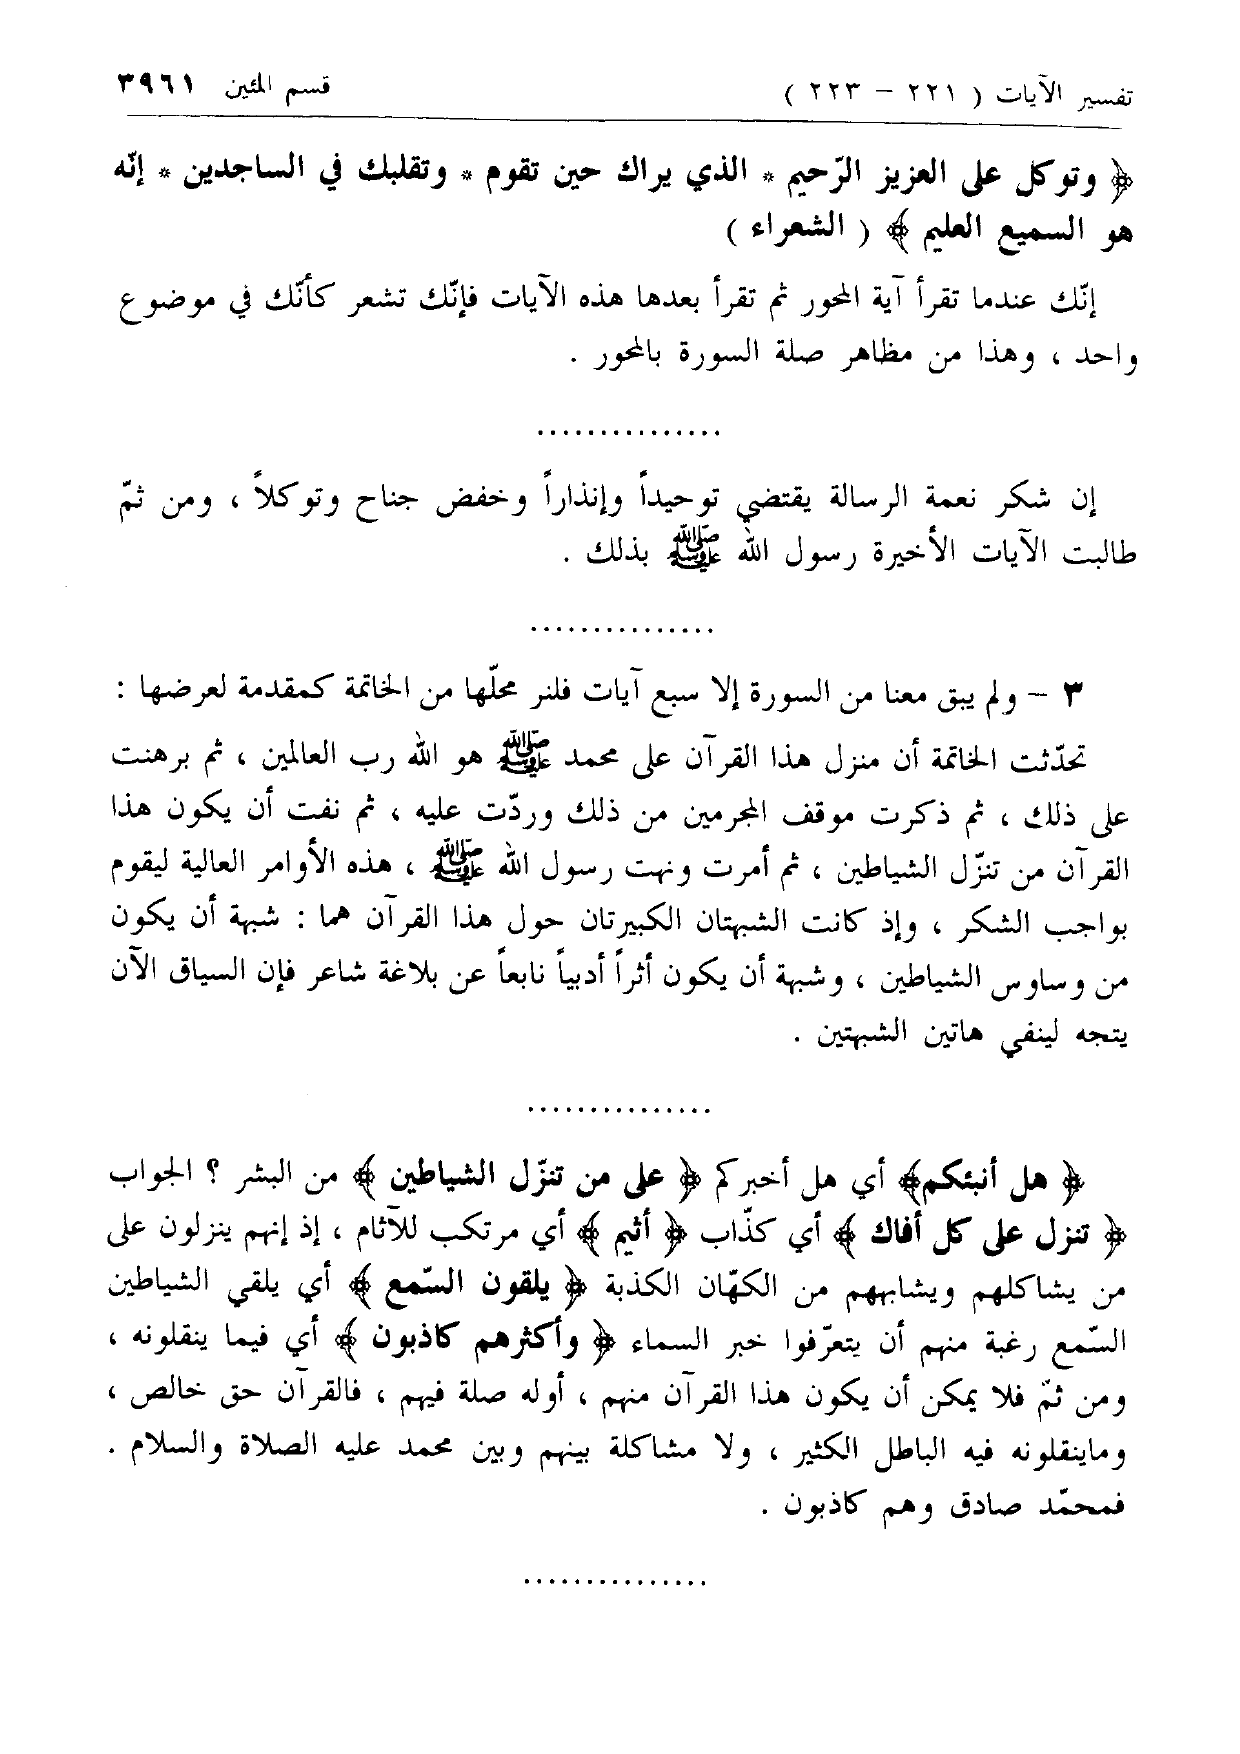 تفسير الآيات ( ٢٢١ – ٢٢٣ ) قسم المئين ٣٩٦١
﴿ وتوكل على العزيز الرّحيم * الذي يراك حين تقوم * وتقلبك في الساجدين * إنّه
هو السميع العليم ﴾ ( الشعراء )
إنّك عندما تقرأ آية المحور ثم تقرأ بعدها هذه الآيات فإنّك تشعر كأنّك في موضوع
واحد ، وهذا من مظاهر صلة السورة بالمحور .
...............
إن شكر نعمة الرسالة يقتضي توحيداً وإنذاراً وخفض جناح وتوكلاً ، ومن ثمّ
طالبت الآيات الأخيرة رسول الله ﷺ بذلك .
...............
٣ – ولم يبق معنا من السورة إلا سبع آيات فلنر محلّها من الخاتمة كمقدمة لعرضها :
تحدّثت الخاتمة أن منزل هذا القرآن على محمد ﷺ هو الله رب العالمين ، ثم برهنت
على ذلك ، ثم ذكرت موقف المجرمين من ذلك وردّت عليه ، ثم نفت أن يكون هذا
القرآن من تنزّل الشياطين ، ثم أمرت ونهت رسول الله ﷺ ، هذه الأوامر العالية ليقوم
بواجب الشكر ، وإذ كانت الشبهتان الكبيرتان حول هذا القرآن هما : شبهة أن يكون
من وساوس الشياطين ، وشبهة أن يكون أثراً أدبياً نابعاً عن بلاغة شاعر فإن السياق الآن
يتجه لينفي هاتين الشبهتين .
...............
﴿ هل أنبئكم﴾ أي هل أخبركم ﴿ على من تنزّل الشياطين ﴾ من البشر ؟ الجواب
﴿ تنزل على كل أفاك ﴾ أي كذّاب ﴿ أثيم ﴾ أي مرتكب للآثام ، إذ إنهم ينزلون على
من يشاكلهم ويشابههم من الكهّان الكذبة ﴿ يلقون السّمع ﴾ أي يلقي الشياطين
السّمع رغبة منهم أن يتعرّفوا خبر السماء ﴿ وأكثرهم كاذبون ﴾ أي فيما ينقلونه ،
ومن ثمّ فلا يمكن أن يكون هذا القرآن منهم ، أوله صلة فيهم ، فالقرآن حق خالص ،
وماينقلونه فيه الباطل الكثير ، ولا مشاكلة بينهم وبين محمد عليه الصلاة والسلام .
فمحمّد صادق وهم كاذبون .
...............